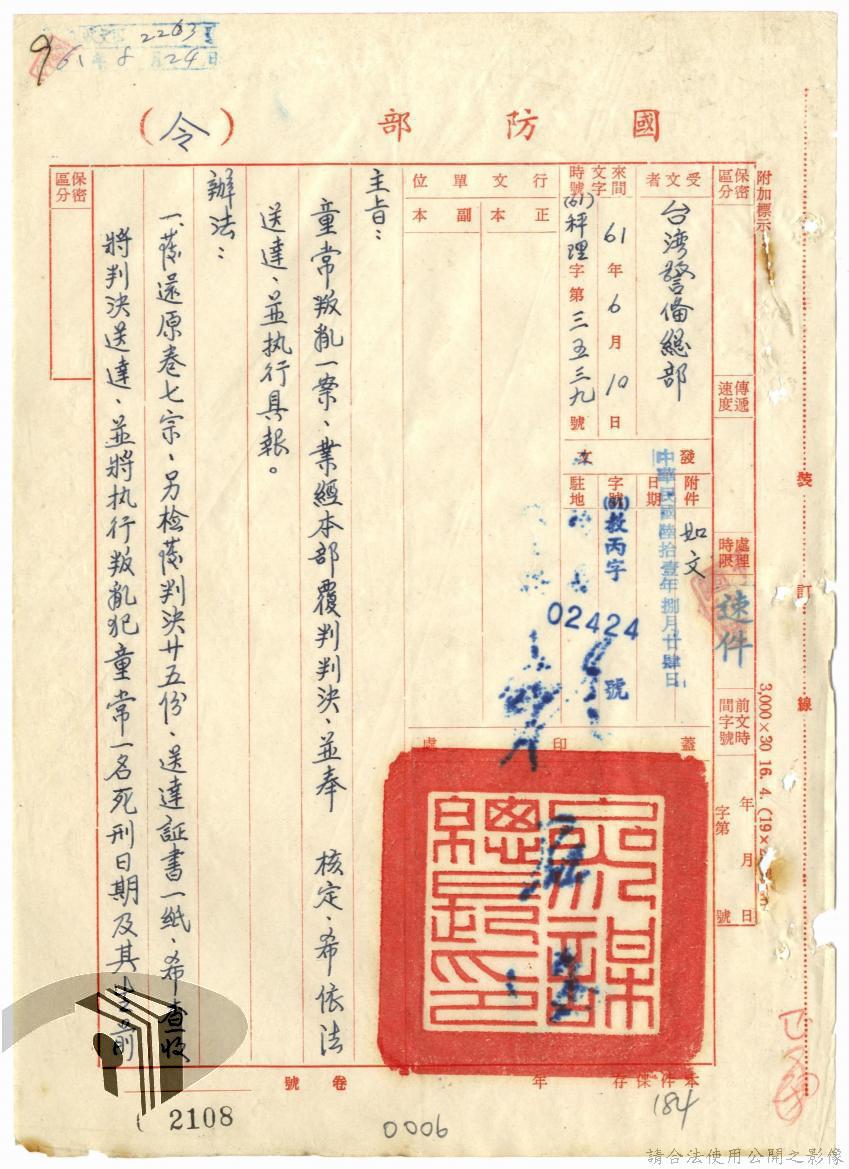 2263
61年8月24日
國防部(令)
附加標示
保密區分
傳遞速度
處理時限
速件
前文時間字號
年月日
字第號
受文者
台湾警備總部
發文
附件
如文
日期
中華民國陸拾壹年捌月廿肆日
字號
(61)教丙字
02424號
駐地
來文時間字號
61年6月10日
(61)秤理字第三五三九號
行文單位
正本
副本
蓋印處
參謀總長印
主旨：
童常叛亂一案、業經本部覆判判決、並奉 核定、希依法
送達、並执行具報。
辦法：
一、茲還原卷七宗、另檢發判決廿五份、送達証書一紙、希查收
將判決送達、並將执行叛亂犯童常一名死刑日期及其生前
保密區分
裝訂線
3,000×30 16. 4. (19×2
本件保存年
卷號
184
(2108
0006
請合法使用公開之影像